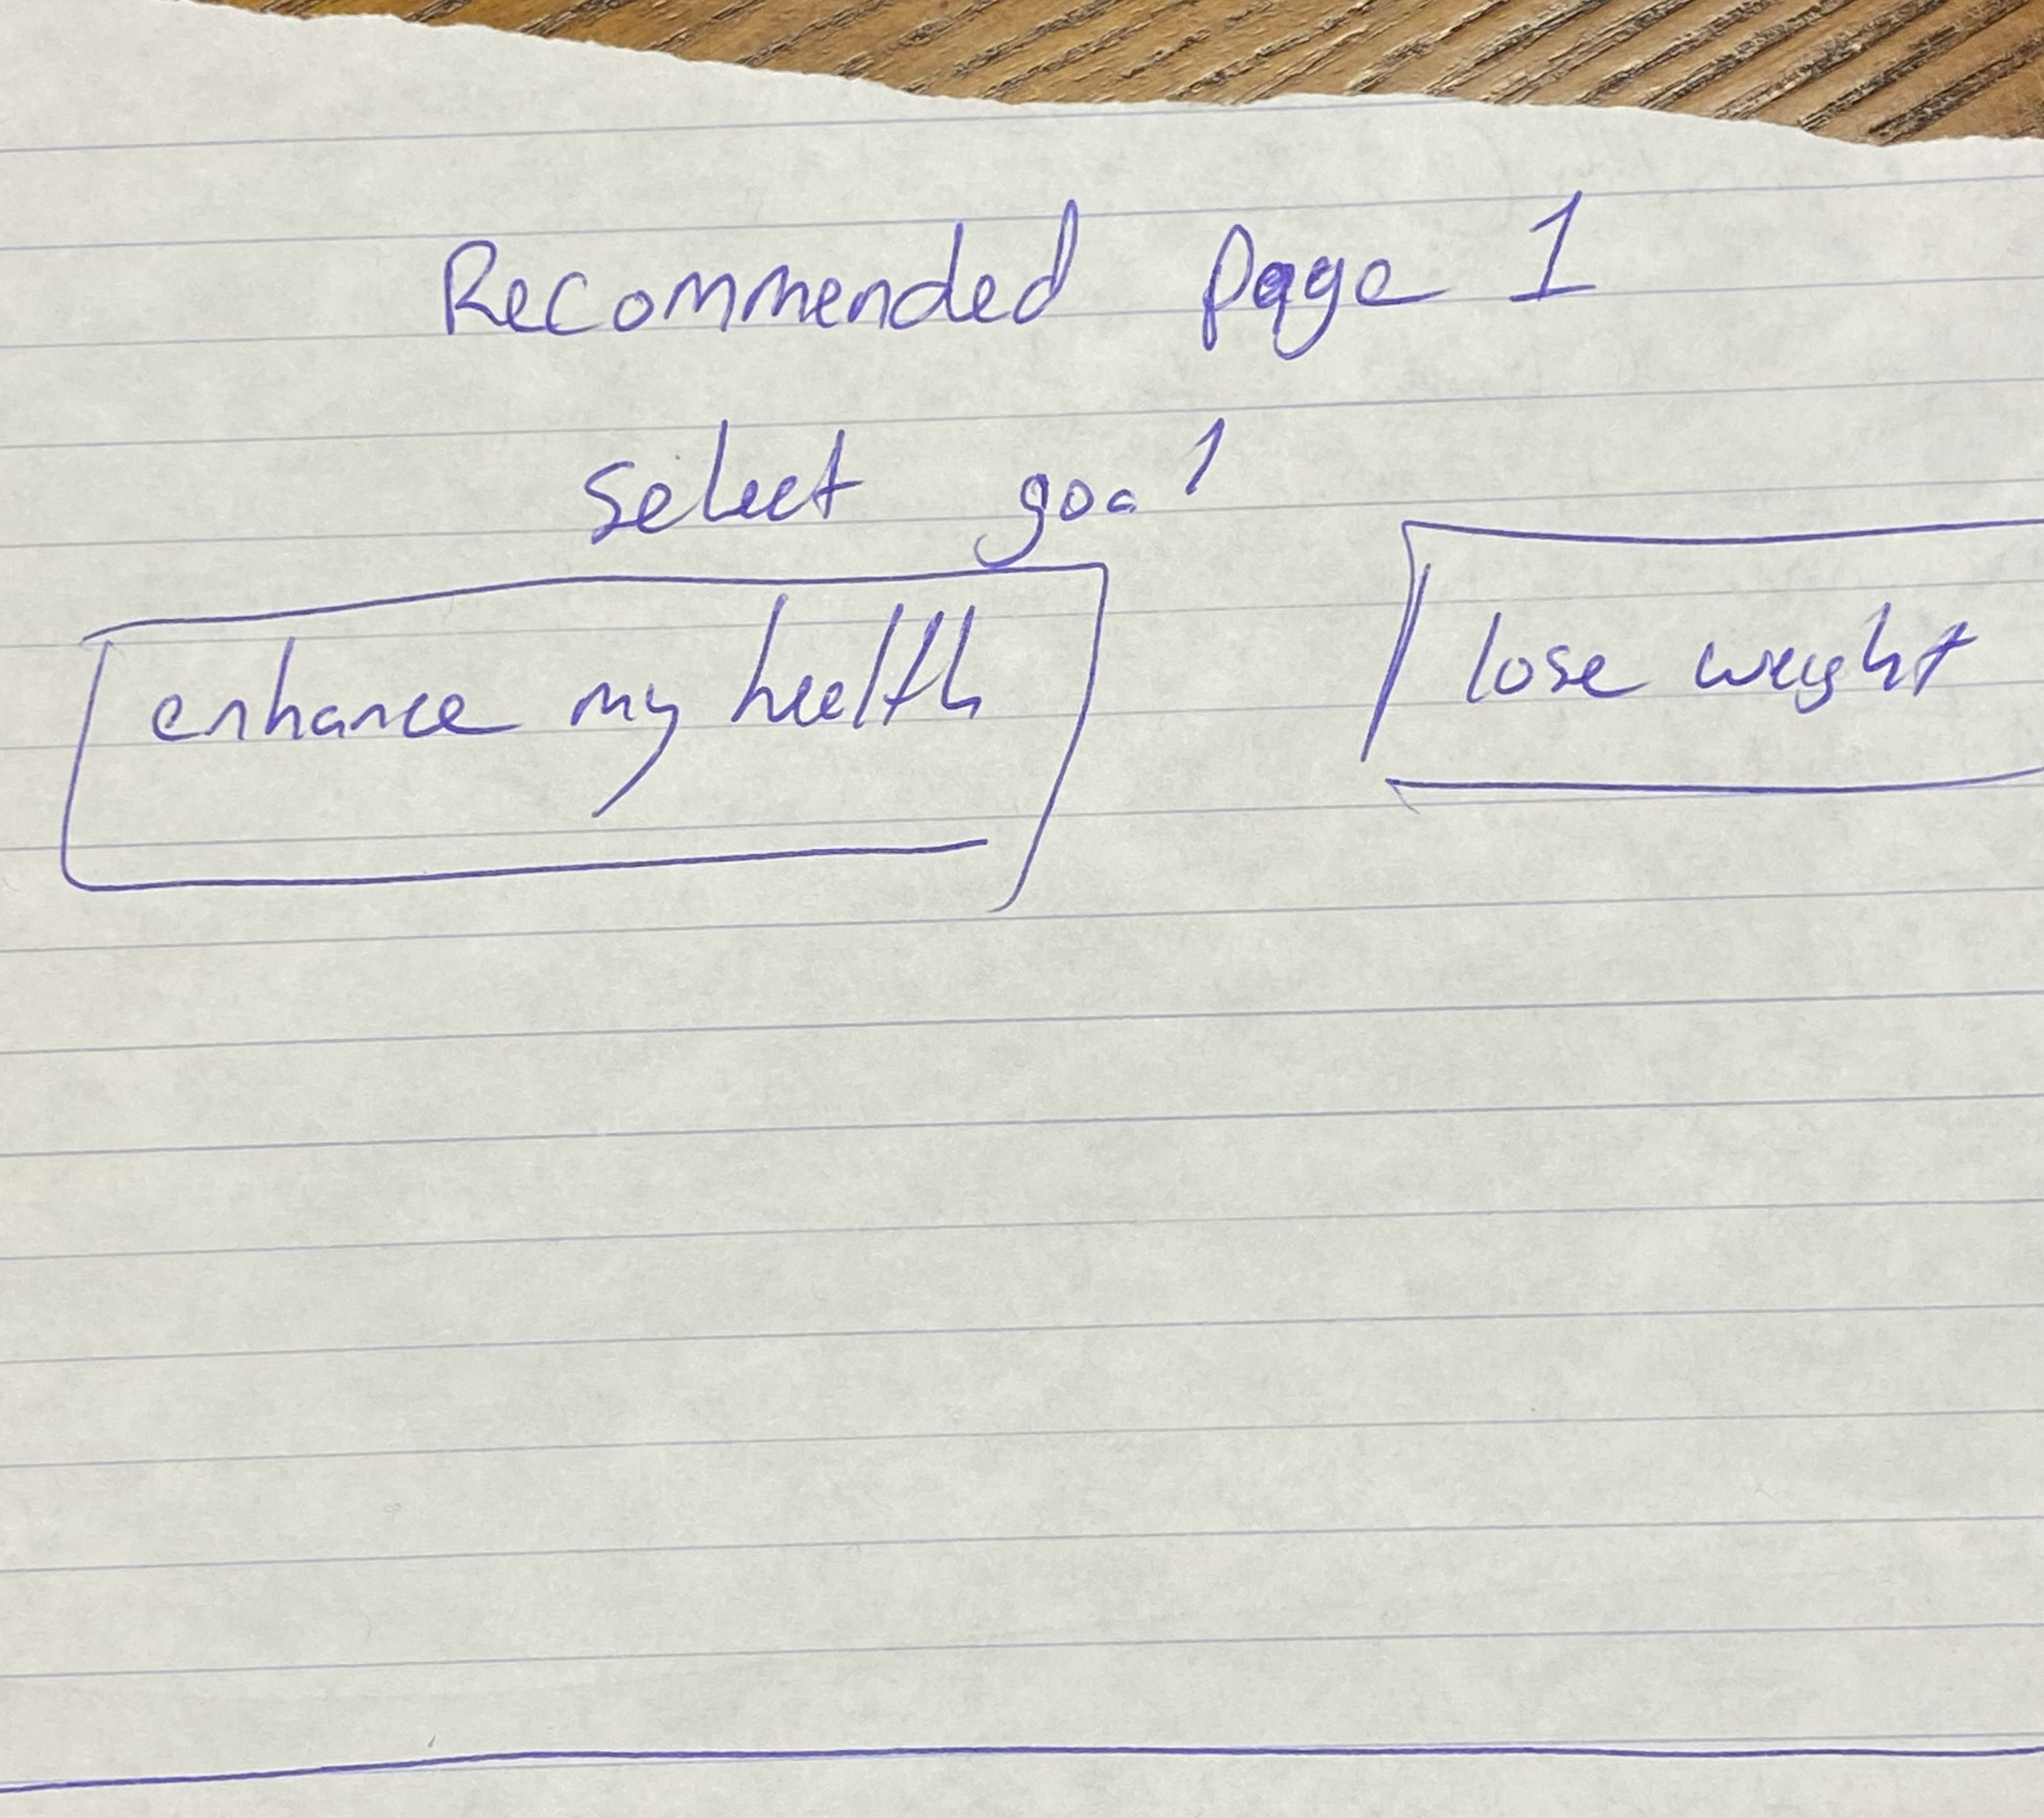 Recommended Page 1
select goal
enhance my health
lose weight